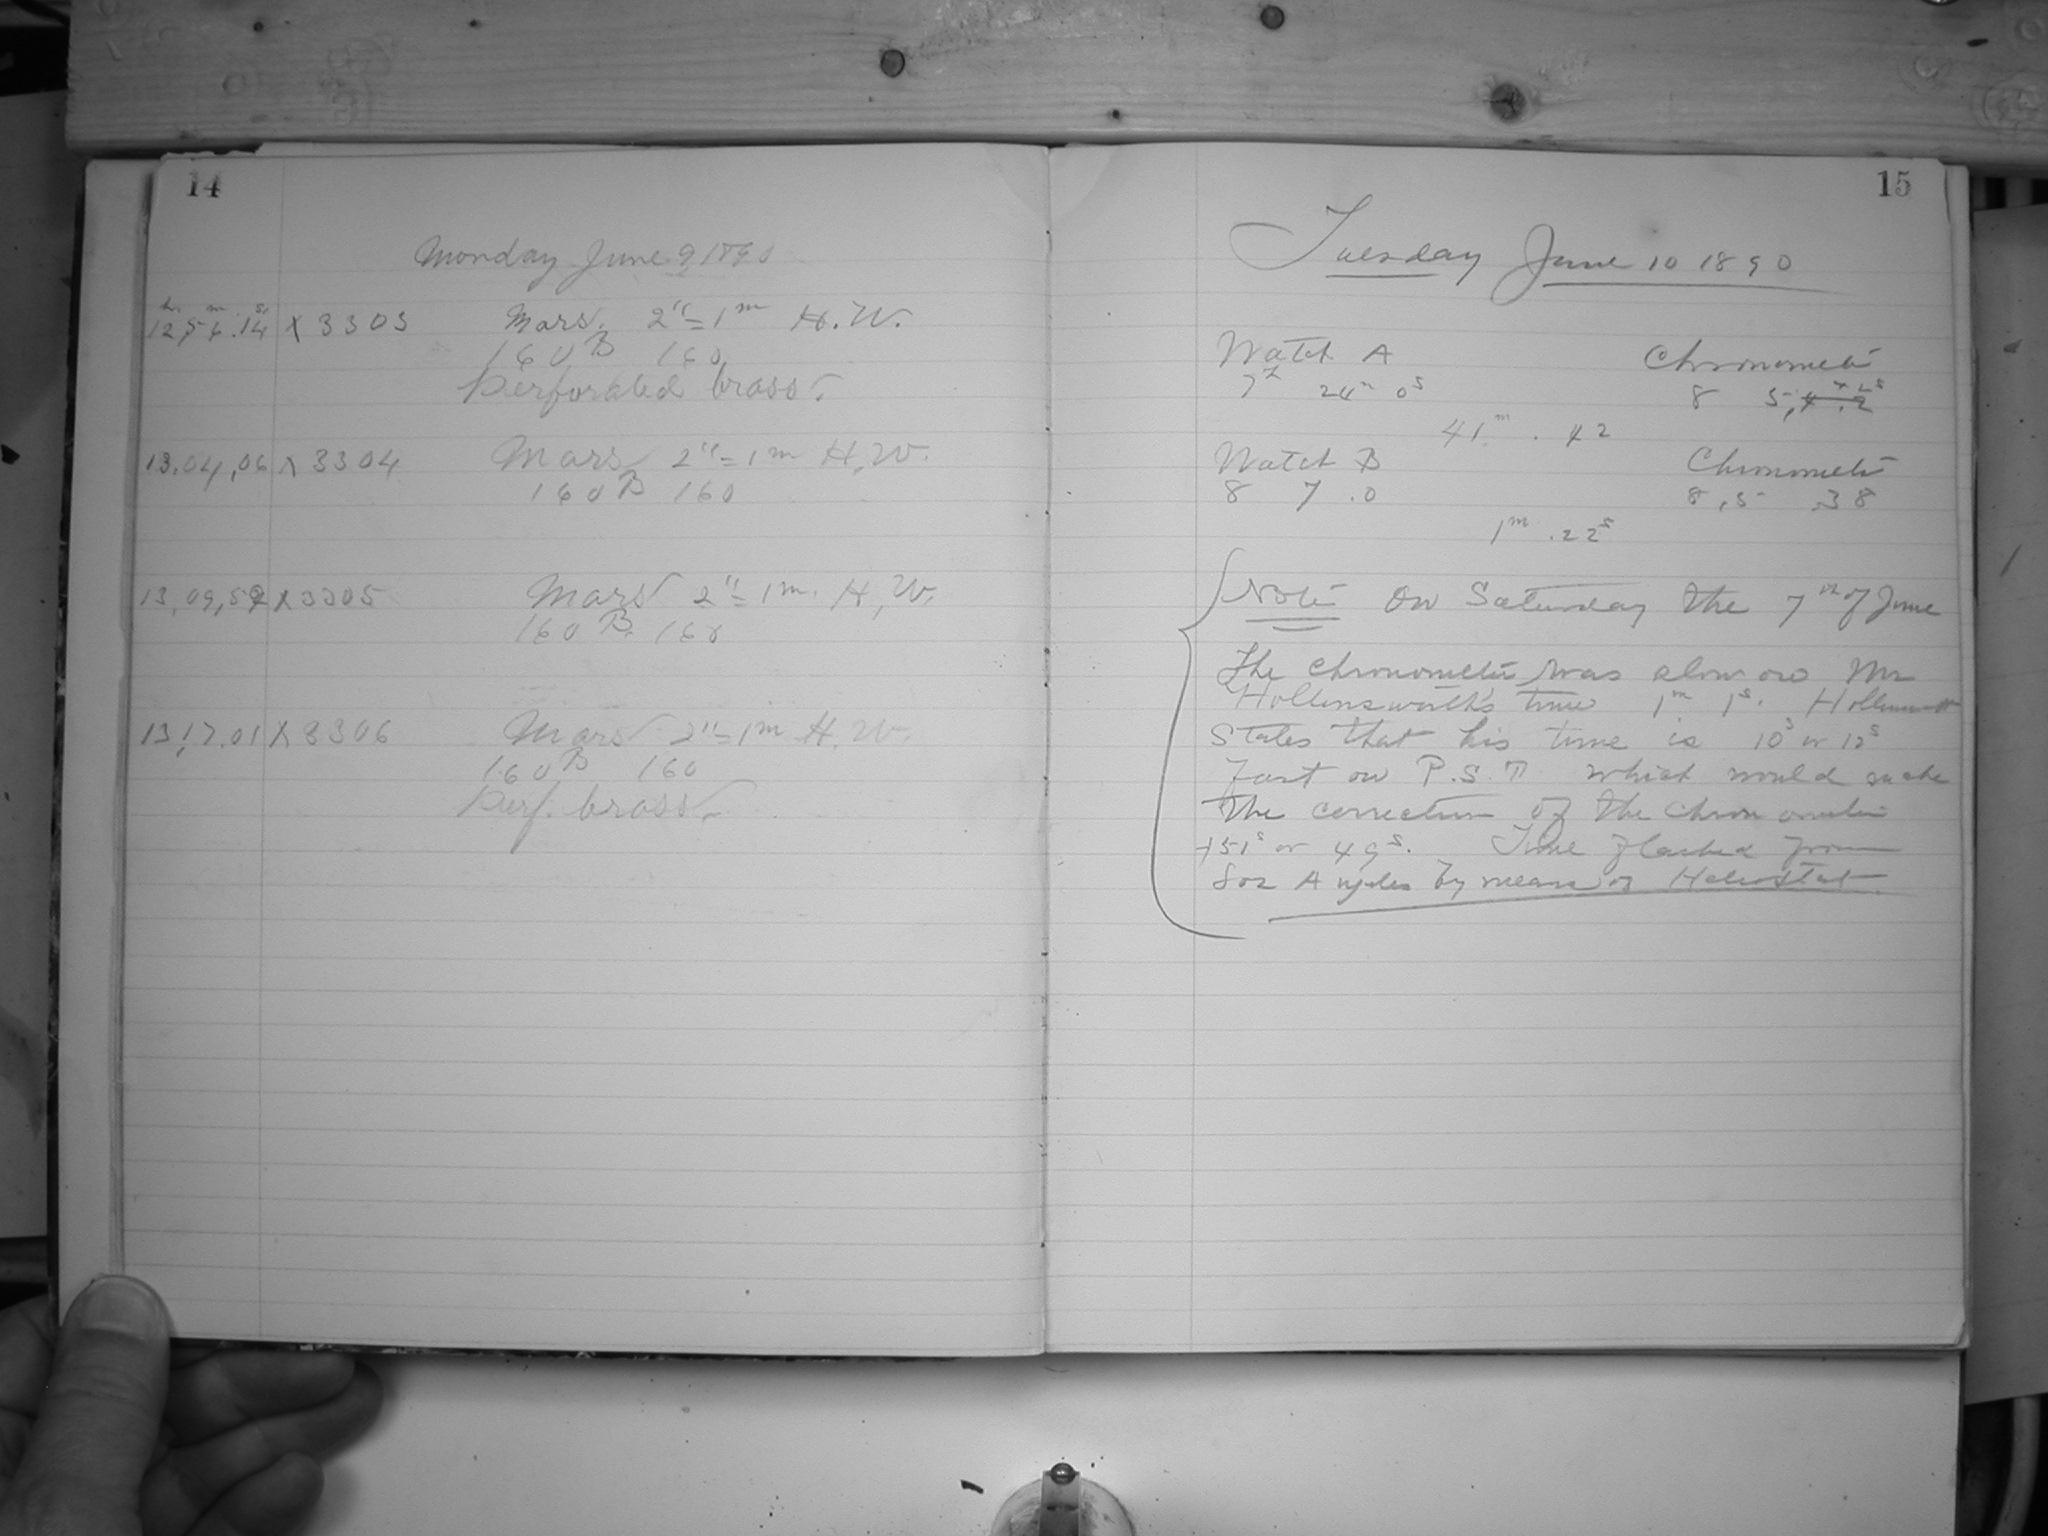 14
Monday June 9 1890
hr. m. s.
12,56.14 X 3303 Mars. 2"=1m H.W.
160 B 160
Perforated brass.
13.04,06 X 3304 Mars 2"=1m H.W.
160 B 160
13,09,59 X 3305 Mars 2"=1m. H.W.
160 B. 160
13,17.01 X 3306 Mars 2"=1m H.W.
160 B 160
Perf. brass.
15
Tuesday June 10 1890
Watch A Chronometer
7h 24m 0s 8 5,
41m. 42
Watch B Chronometer
8 7 .0 8,5 .38
1m .22s
Note On Saturday the 7th of June
The chronometer was slow on Mr
Hollinsworth's time 1m 1s.
States that his time is 10s or 12s
fast on P.S.T. which would make
the correction of the Chronometer
+51s or 49s. Time flashed from
Los Angeles by means of Heliostat